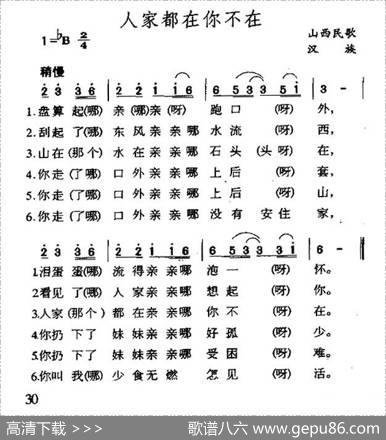 人家都在你不在
1=♭B 2/4
山西民歌
汉族
稍慢
2̇3̇ 3̇6 | 2̇2̇ 1̇1̇6 | 6 5 3 3 5 1̇ | 3̇ - |
1.盘算 起(哪) 亲(哪)亲(呀) 跑口 (呀) 外,
2.刮起 了(哪) 东风亲亲哪 水流 (呀) 西,
3.山在(那个) 水在亲亲哪 石头(头呀) 在,
4.你走(了哪) 口外亲亲哪 上后 (呀) 套,
5.你走(了哪) 口外亲亲哪 上后 (呀) 山,
6.你走(了哪) 口外亲亲哪 没有安住 家,
2̇3̇ 3̇6 | 2̇2̇ 1̇1̇6 | 6 5 3 3 3 1̇ | 6 - ‖
1.泪蛋 蛋(哪) 流得亲亲哪 泡一 (呀) 怀。
2.看见 了(哪) 人家亲亲哪 想起 (呀) 你。
3.人家(那个) 都在亲亲哪 你不 (呀) 在。
4.你扔 下了 妹妹亲亲哪 好孤 (呀) 少。
5.你扔 下了 妹妹亲亲哪 受困 (呀) 难。
6.你叫 我(哪) 少食无燃 怎见 (呀) 活。
30
高清下载 ▶▶▶ 歌谱八六 www.gepu86.com